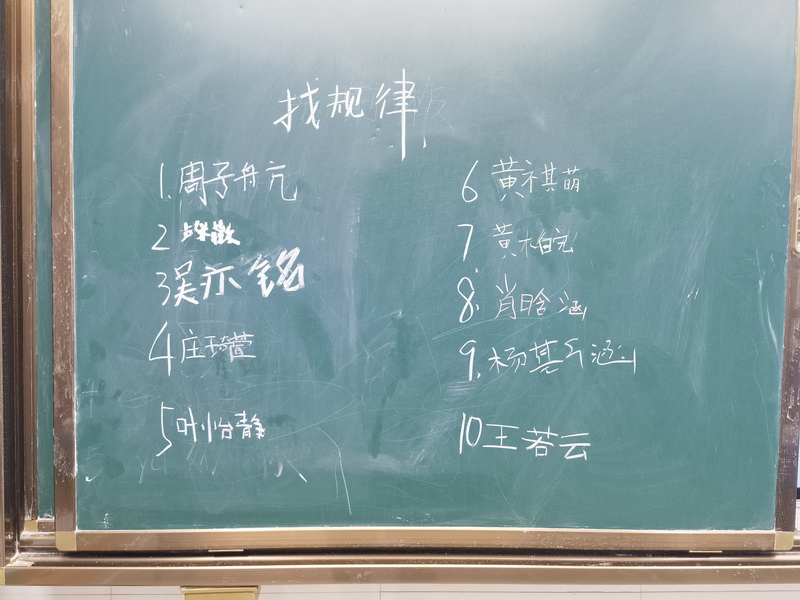 找规律
1.周子舟亢
2
3吴亦铭
4庄琦萱
5叶怡静
6 黄祺萌
7 黄柏
8.肖晗涵
9.杨其乐涵
10王若云